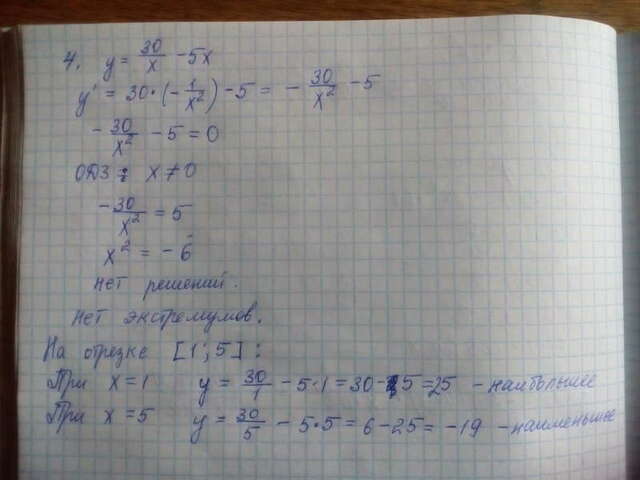 4. y = 30/x - 5x
y' = 30·(-1/x²) - 5 = - 30/x² - 5
- 30/x² - 5 = 0
ОДЗ: x ≠ 0
-30/x² = 5
x² = - 6
нет решений.
нет экстремумов.
На отрезке [1; 5]:
При x = 1 y = 30/1 - 5·1 = 30 - 5 = 25 - наибольшее
При x = 5 y = 30/5 - 5·5 = 6 - 25 = -19 - наименьшее